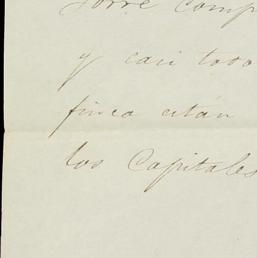 Torre comp
y casi todo
finca están
los Capitales